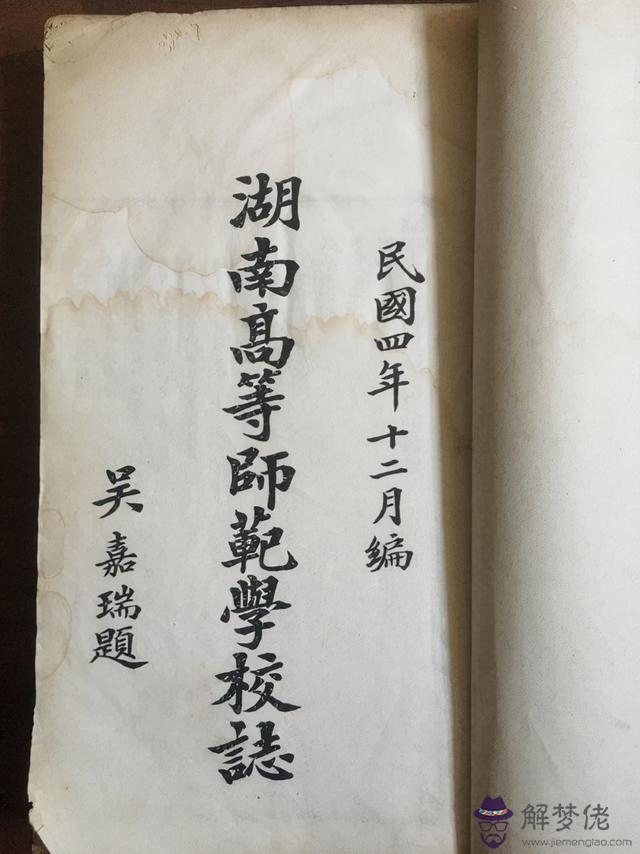 民國四年十二月編
湖南高等師範學校誌
吴嘉瑞題
解梦佬
www.jiemenglao.com